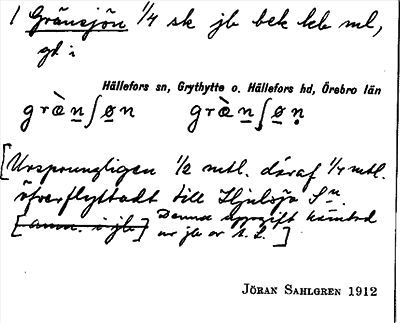 1 Gränsjön 1/4 sk jb bek kb ml,
gd i
Hällefors sn, Grythytte o. Hällefors hd, Örebro län
græ̀nʃøn græ̀nʃøṇ
[Ursprungligen 1/2 mtl. däraf 1/4 mtl.
öfverflyttadt till Hjulsjö Sn.
[anm. i jb] Denna uppgift hämtad
ur jb or A. L. ]
JÖRAN SAHLGREN 1912